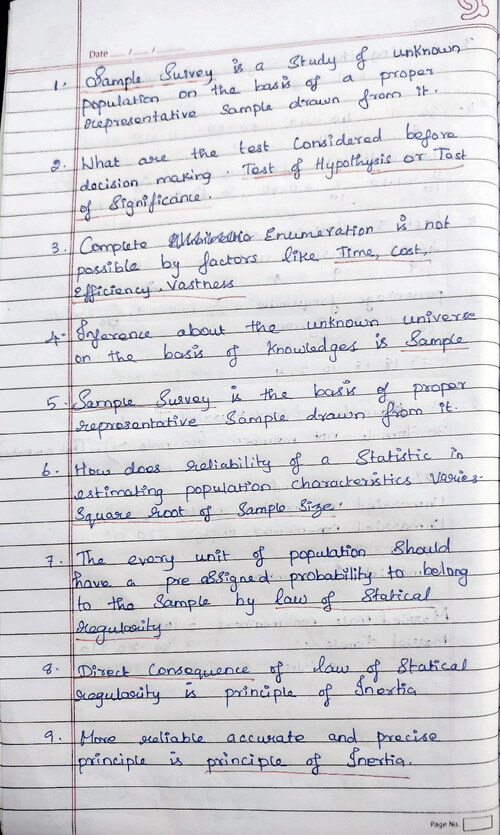 Date ___/___/___
1. Sample Survey is a Study of unknown
population on the basis of a proper
representative Sample drawn from it.
2. What are the test Considered before
decision making. Test of Hypothysis or Tast
of Significance.
3. Complete Enumeration is not
possible by factors like Time, Cost,
Efficiency, Vastness
4. Inference about the unknown universe
on the basis of Knowledges is Sample
5. Sample Survey is the basis of proper
representative Sample drawn from it.
6. How does reliability of a Statistic in
estimating population characteristics Varies-
Square root of Sample Size.
7. The every unit of population Should
have a pre assigned probability to belong
to the Sample by law of Statical
regularity
8. Direct Consequence of law of Statical
regularity is principle of Inertia
9. More reliable accurate and precise
principle is principle of Inertia.
Page No.